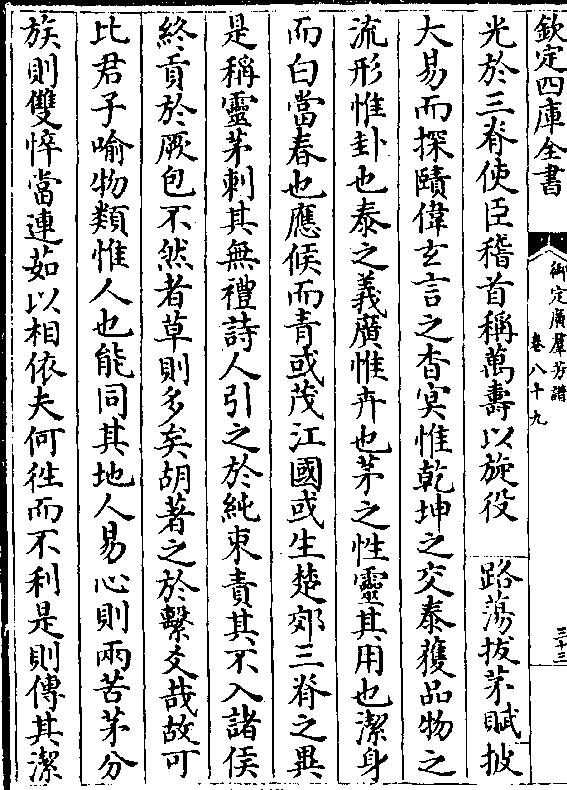 欽定四庫全書
御定廣羣芳譜
卷八十九
三十三
光於三脊使臣稽首稱萬壽以旋役 路蕩拔茅賦披
大易而探賾偉玄言之杳冥惟乾坤之交泰獲品物之
流形惟卦也泰之義廣惟卉也茅之性靈其用也潔身
而白當春也應候而青或茂江國或生楚郊三脊之異
是稱靈茅刺其無禮詩人引之於純束責其不入諸侯
終貢於厥包不然者草則多矣胡著之於繫爻哉故可
比君子喻物類惟人也能同其地人易心則兩苦茅分
族則雙悴當連茹以相依夫何徃而不利是則傳其潔